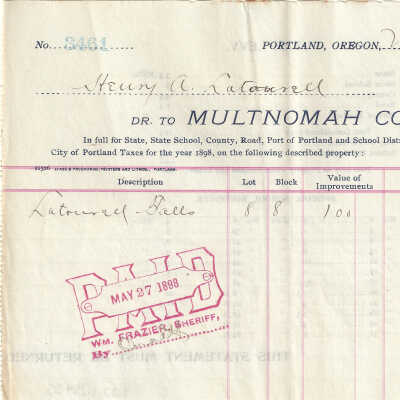 No. 3461
PORTLAND, OREGON,
Henry A. Latourell
DR. TO MULTNOMAH CO
In full for State, State School, County, Road, Port of Portland and School Dist
City of Portland Taxes for the year 1898, on the following described property:
Description Lot Block Value of Improvements
Latourell Falls 8 8 100
PAID
MAY 27 1898
WM. FRAZIER, SHERIFF,
By
THIS STATEMENT MUST BE RETURNE